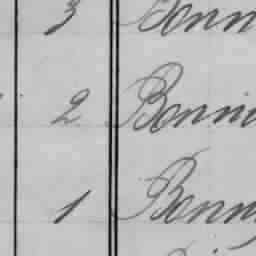 3 Bonn
2 Bonni
1 Bonn